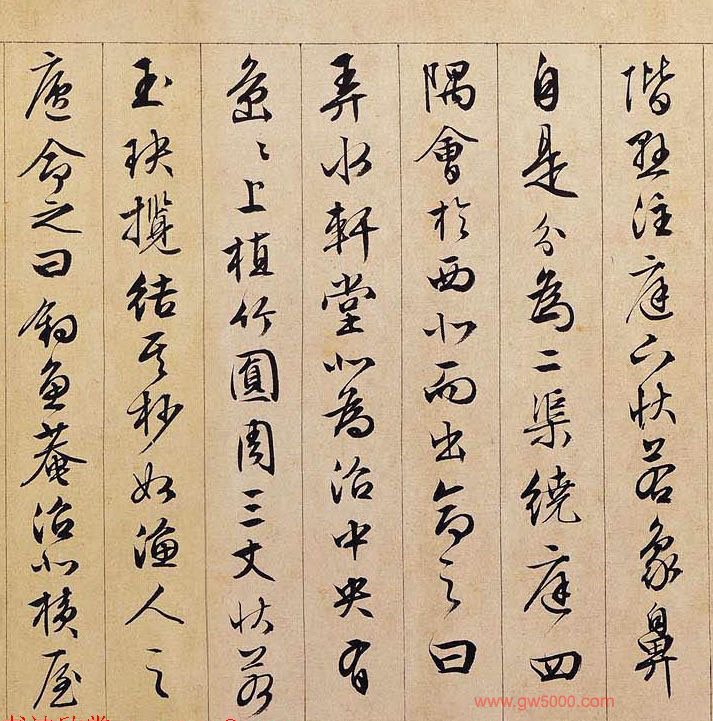 階懸注庭下狀若象鼻
自是分為二渠繞庭四
隅會於西北而出命之曰
弄水軒堂北為沼中央有
島〻上植竹圓周三丈狀若
玉玦攬結其杪如漁人之
廬命之曰釣魚菴沼北橫屋
www.gw5000.com